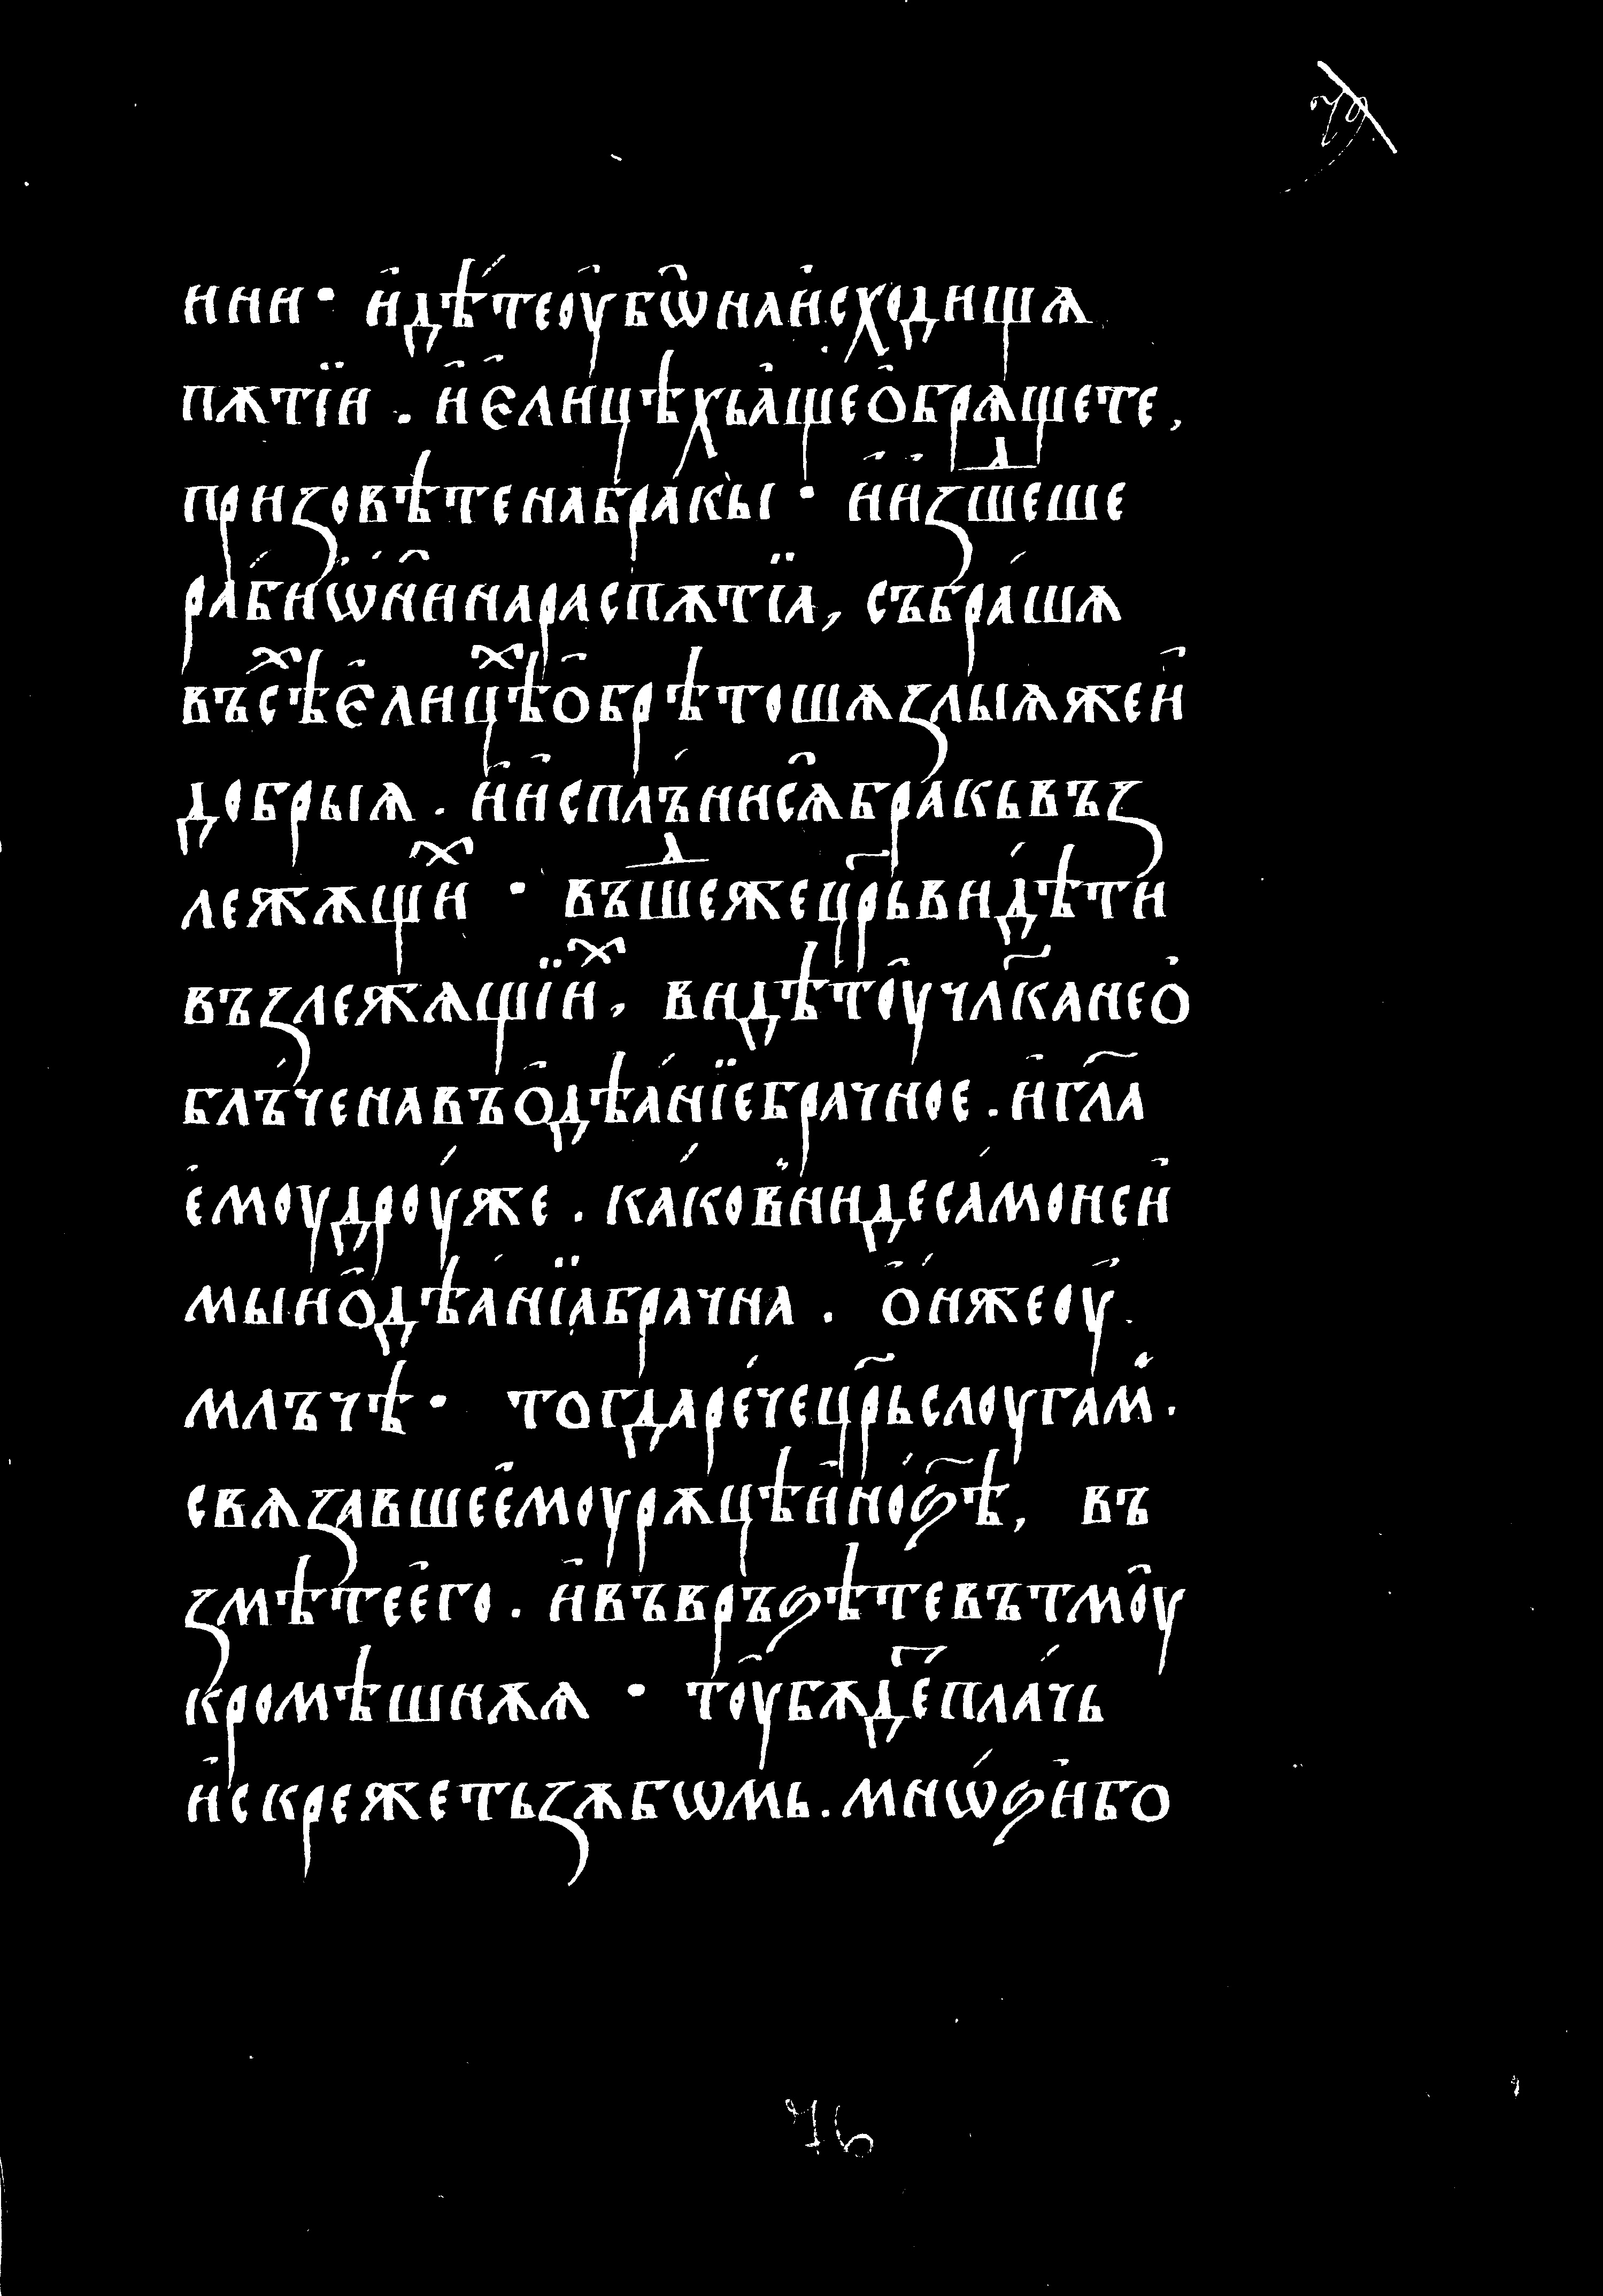 нни · и҆дѣ́теоу҆бѡ̑наи҆сходища
пѫтїи . и҆ є҆лицѣхьа҆щео҆брѧщете ,
призовѣтенабра́кы · и҆и҆ꙁшⷣеше
раби́ѡ҆нꙑ̑инараспѫтїа , събра́шѧ
въсѣⷯє҆лицѣⷯо҆брѣтошѧꙁлыѧжеи҆
добрыѧ . и҆и҆сплъ́нисѧ̑бракьвъꙁ
лежѫщиⷯ · въшⷣежецр҃ьви́дѣти
въꙁлежѧщїиⷯ , видѣтоу҆чл҃канео҆
блъ́ченавъо҆дѣа́нїебрачное . и҆гл҃а
е҆моудроу́же . ка́кови҆ндеса́монеи҆
мыио҆дѣа́нїабрачна . о҆́нжеоу҆
млъчѣ · тогдаре́чецр҃ьслоугам̑ .
свѧꙁавшее҆моурѫцѣи҆но́ꙃѣ , въ
ꙁмѣтее҆го . и҆въвръꙃѣтевътмоу
кромѣшнѫѧ · тоу҆бѫде҃пла́чь
и҆скрежетьꙁѫбѡмь . мнѡ́ꙃи҆бо
76